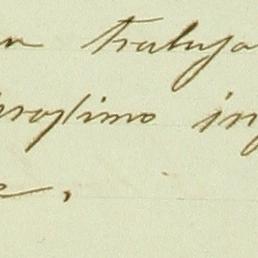 n trabaja
proximo in
e,